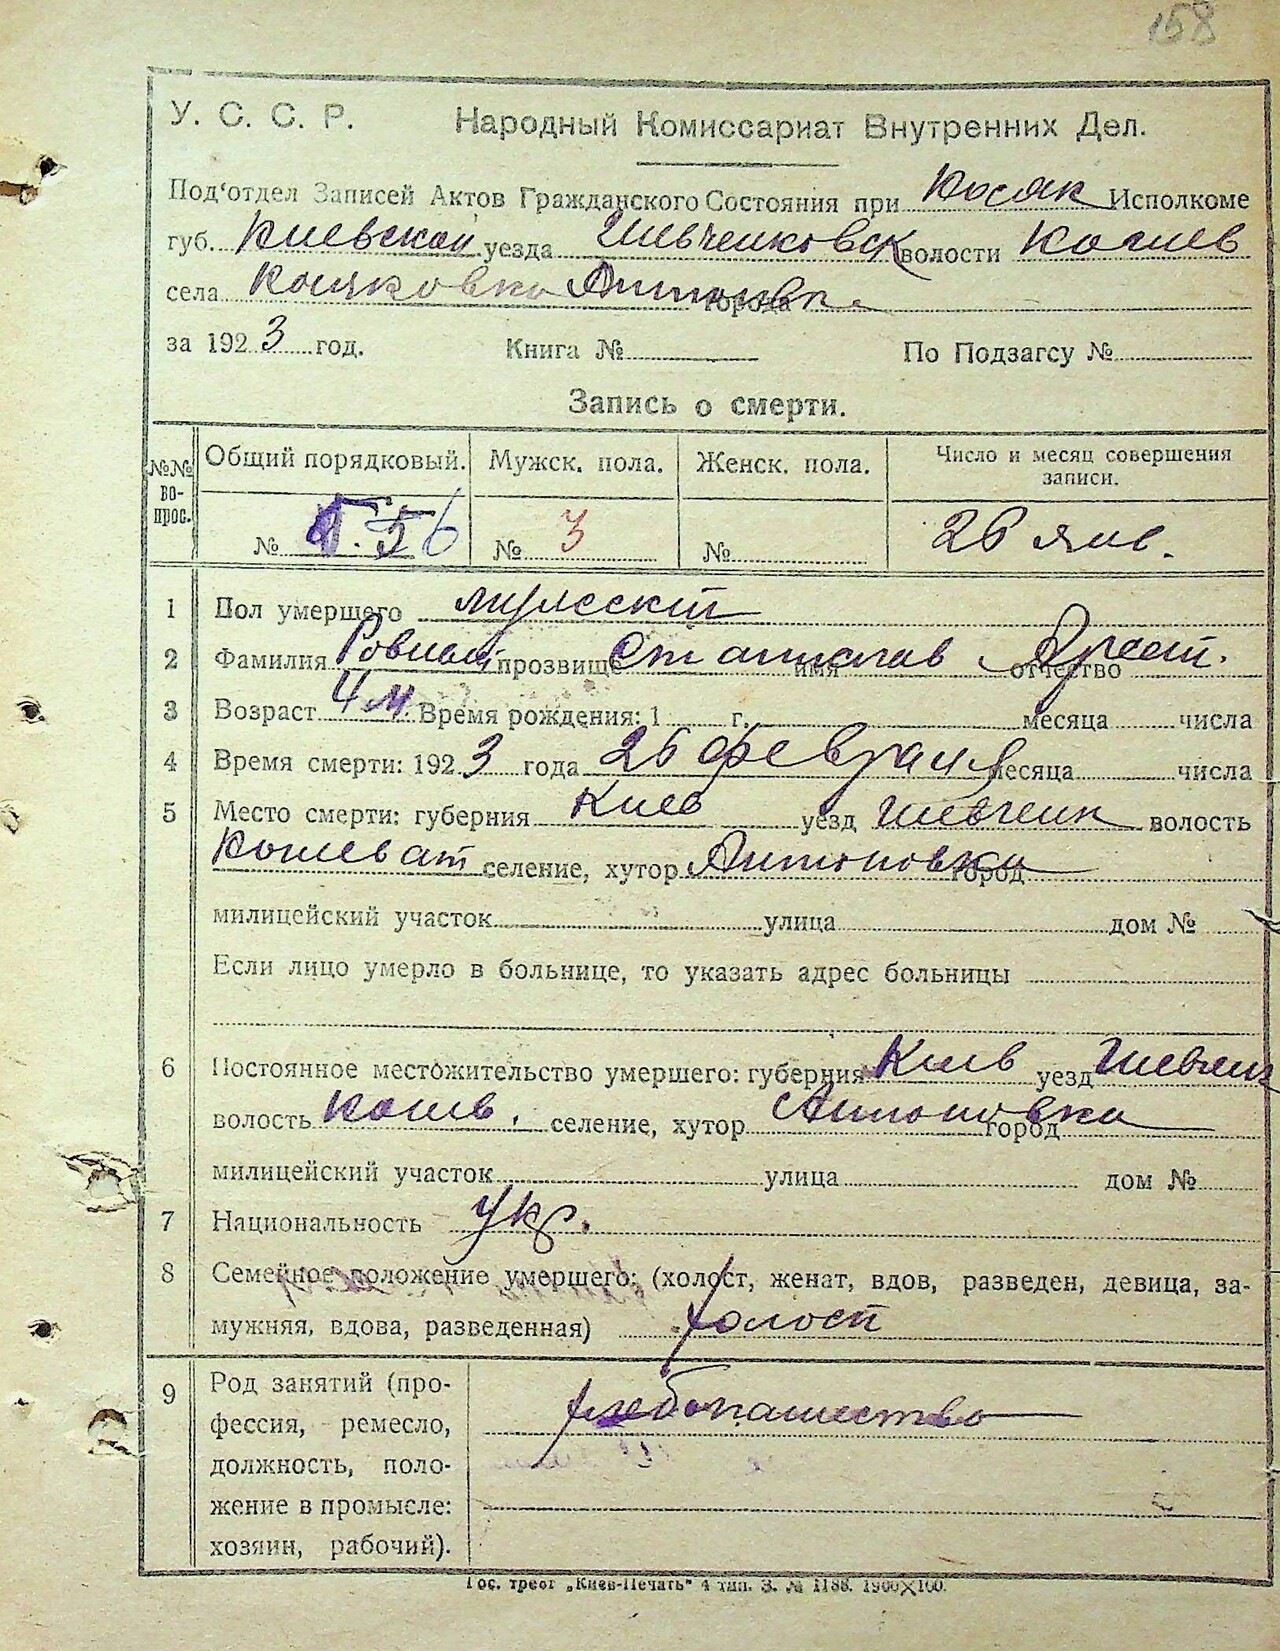 158
У. С. С. Р. Народный Комиссариат Внутренних Дел.
Под'отдел Записей Актов Гражданского Состояния при Косяк Исполкоме
губ. Киевской уезда Шевченковск волости Кошев
села Антоновка города
за 1923 год. Книга № По Подзагсу №
Запись о смерти.
№№ вопрос. Общий порядковый. Мужск. пола. Женск. пола. Число и месяц совершения записи.
№ № 3 № 26 янв.
1 Пол умершего мужеский
2 Фамилия прозвище Станислав имя отчество
3 Возраст 4 м Время рождения: 1 г. месяца числа
4 Время смерти: 1923 года 26 февраля месяца числа
5 Место смерти: губерния Киев уезд Шевченк волость
Кошеват селение, хутор Антоновка город
милицейский участок улица дом №
Если лицо умерло в больнице, то указать адрес больницы
6 Постоянное местожительство умершего: губерния Киев уезд Шевченк
волость Кошев. селение, хутор Антоновка город
милицейский участок улица дом №
7 Национальность укр.
8 Семейное положение умершего: (холост, женат, вдов, разведен, девица, за-
мужняя, вдова, разведенная) холост
9 Род занятий (про-
фессия, ремесло, хлебопашество
должность, поло-
жение в промысле:
хозяин, рабочий).
Гос. трест „Киев-Печать" 4 тип. З. № 1188. 1900×100.